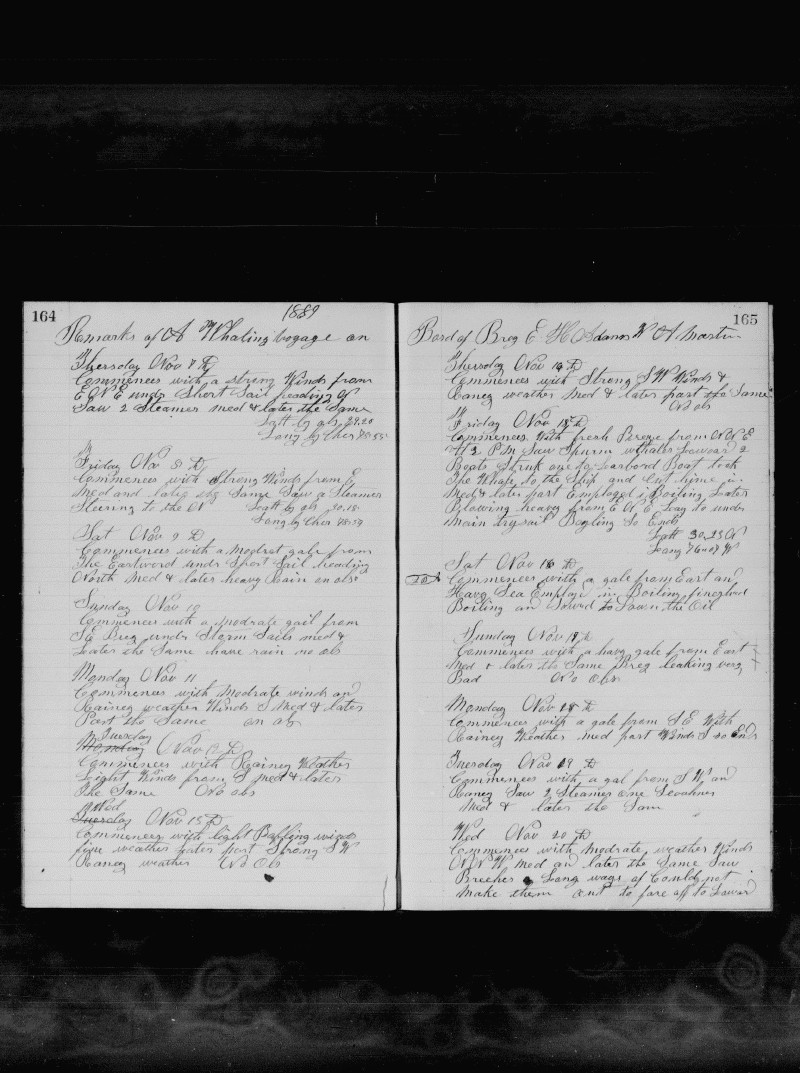 164
1889
Remarks of A Whaling voyage on
Thersday Nov 7 th
Commences with a strong Winds from
E N E under Short Sail heading N
Saw 2 Steamers med & later the Same
Latt by obs 29.20
Long by Cher
Friday Nov 8 th
Commences with Strong Winds from E
Med and later the Same Saw a Steamer
Steering to the N Latt by obs 30.15
Long by Cher
Sat Nov 9 th
Commences with a Modrat gale from
The Eastword under Short Sail heading
North Med & later heavy Rain no obs
Sunday Nov 10
Commences with a modrate gail from
S E Breg under Storm Sails med &
Later the Same have rain no ob
Monday Nov 11
Commences with Modrate winds and
Raineg weather Winds S Med & later
Part the Same no obs
Tuesday
Monday Nov 12 th
Commences with Rainey Weather
Light Winds from S med & later
The Same No obs
Wed
Tuesday Nov 13 th
Commences with light Baffling winds
fine weather Later part Strong S W
Raney weather No Obs
165
Bord of Breg E H Adams W A Martin
Thersday Nov 14 th
Commences with Strong S W Winds &
Raneg weather Med & later part the Same
No obs
Friday Nov 15 th
Commences With fresh Breeze from N N E
At 2 P M Saw Sparm whales Lowoard 2
Boats Struk one to Larbord Boat took
The Whale to the Ship and Cut hime in
Med & later part Employed in Boiling Later
Blowing heavy from E N E Lay to under
Main trysail Boyling So Ends
Latt 30.25 N
Long 76-07 W
Sat Nov 16 th
Commences with a gale from East and
Havy Sea Employd in Boiling fineshed
Boiling an Stowd to Lowen the Oil
Sunday Nov 17 th
Commences with a havy gale from East
Med & later the Same Breg leaking very
Bad No Obs
Monday Nov 18 th
Commences with a gale from S E With
Rainey Weather med part Winds S so Ends
Tuesday Nov 19 th
Commences with a gal from S W and
Raney Saw 2 Steamers one Scoohner
Med & later the Sam
Wed Nov 20 th
Commences with Modrate weather Winds
N N W med an later the Same Saw
Breches Long ways of Could not
Make them out to fare off to Lowar